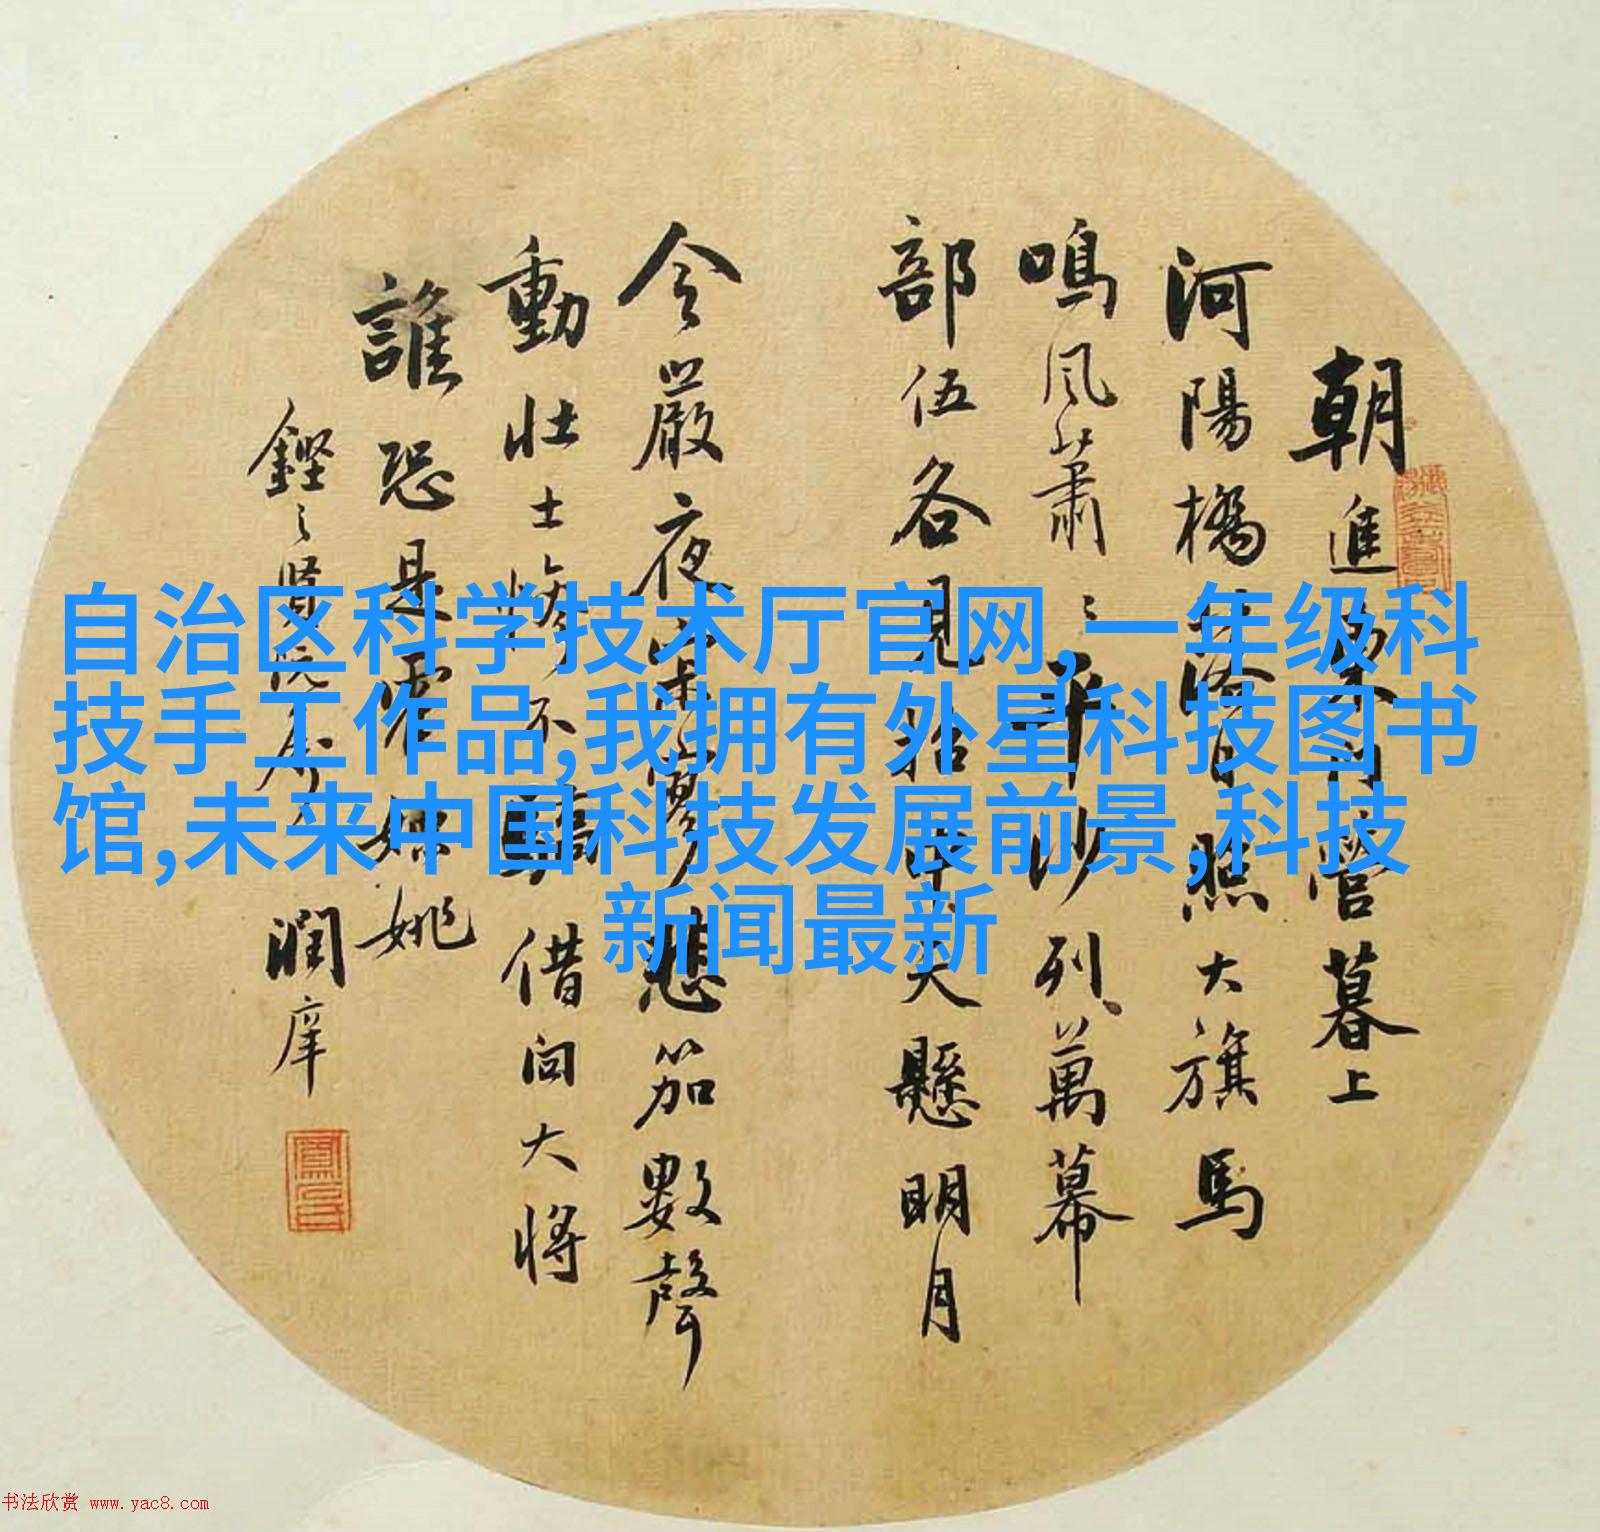 朝進東門營暮上
河陽橋落日照大旗馬
鳴風蕭〻平沙列萬幕
部伍各見招中天懸明月
令嚴夜寂寥悲笳數聲
動壯士慘不驕借問大將
誰恐是霍嫖姚
鏗之賢阮屬 潤庠
自治区科学技术厅官网,一年级科
技手工作品,我拥有外星科技图书
馆,未来中国科技发展前景,科技
新闻最新
书法欣赏 www.yac8.com